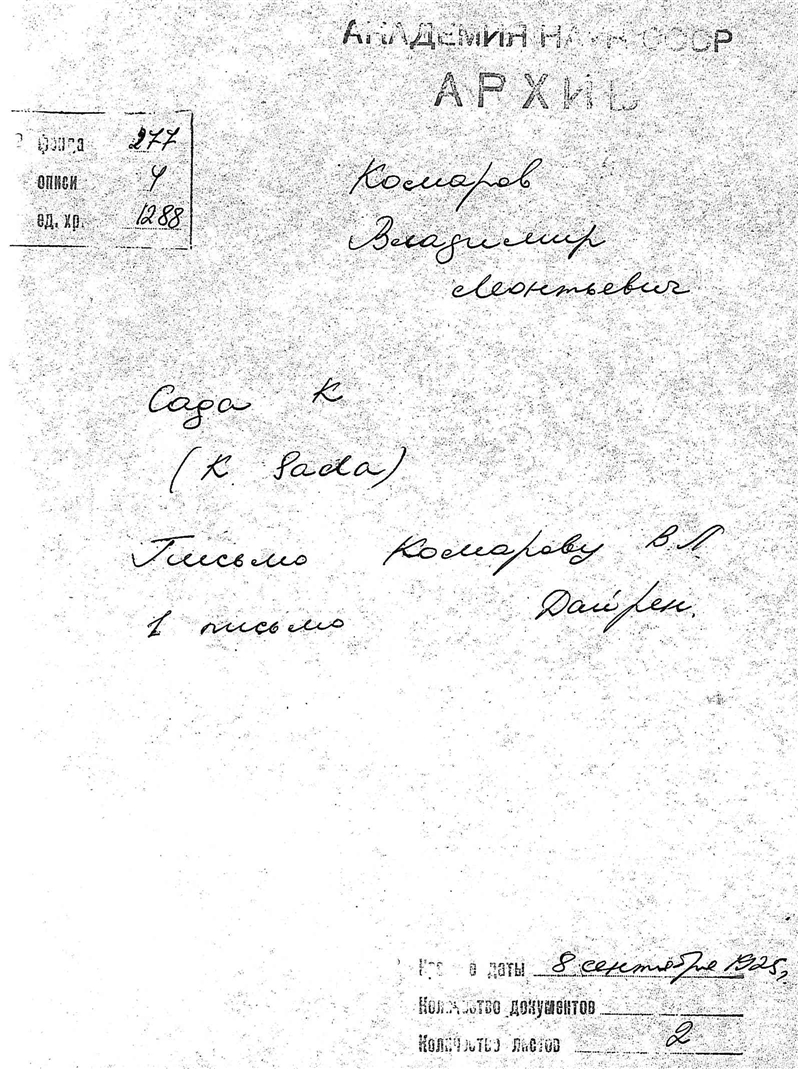 АКАДЕМИЯ НАУК СССР
АРХИВ
фонда 277
описи 4
ед. хр. 1288
Комаров
Владимир
Леонтьевич
Сада К
(K Sada)
Письмо Комарову В Л.
1 письмо Дайрен.
даты 8 сентября 1925г
Количество документов
Количество листов 2